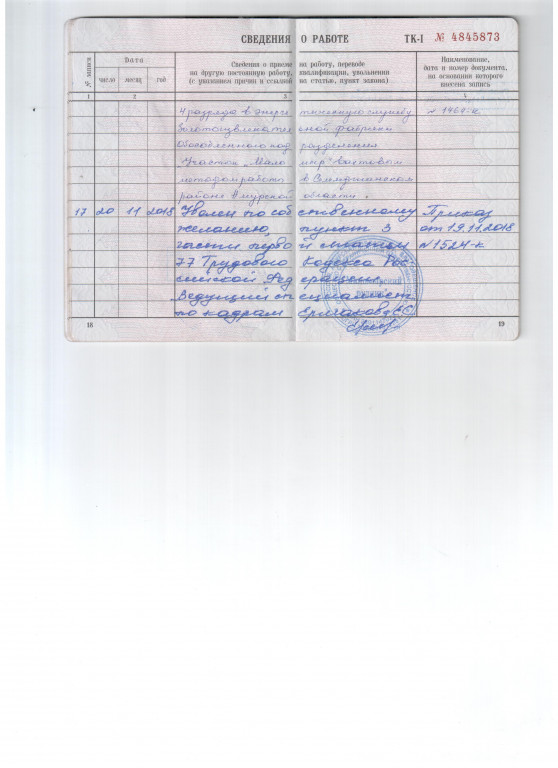 СВЕДЕНИЯ О РАБОТЕ ТК-I № 4845873
№ записи
Дата
число месяц год
Сведения о приеме на работу, переводе
на другую постоянную работу, квалификации, увольнении
(с указанием причин и ссылкой на статью, пункт закона)
Наименование,
дата и номер документа,
на основании которого
внесена запись
1 2 3 4
4 разряда в энергетическую службу
Золотоизвлекательной фабрики
Обособленного подразделения
Участок „Маломыр" вахтовым
методом работы в Селемджинском
районе Амурской области.
17 20 11 2018 Уволен по собственному Приказ
желанию, пункт 3 от 19.11.2018
части первой статьи №1524-к
77 Трудового Кодекса Рос-
сийской Федерации.
Ведущий специалист
по кадрам
18 19